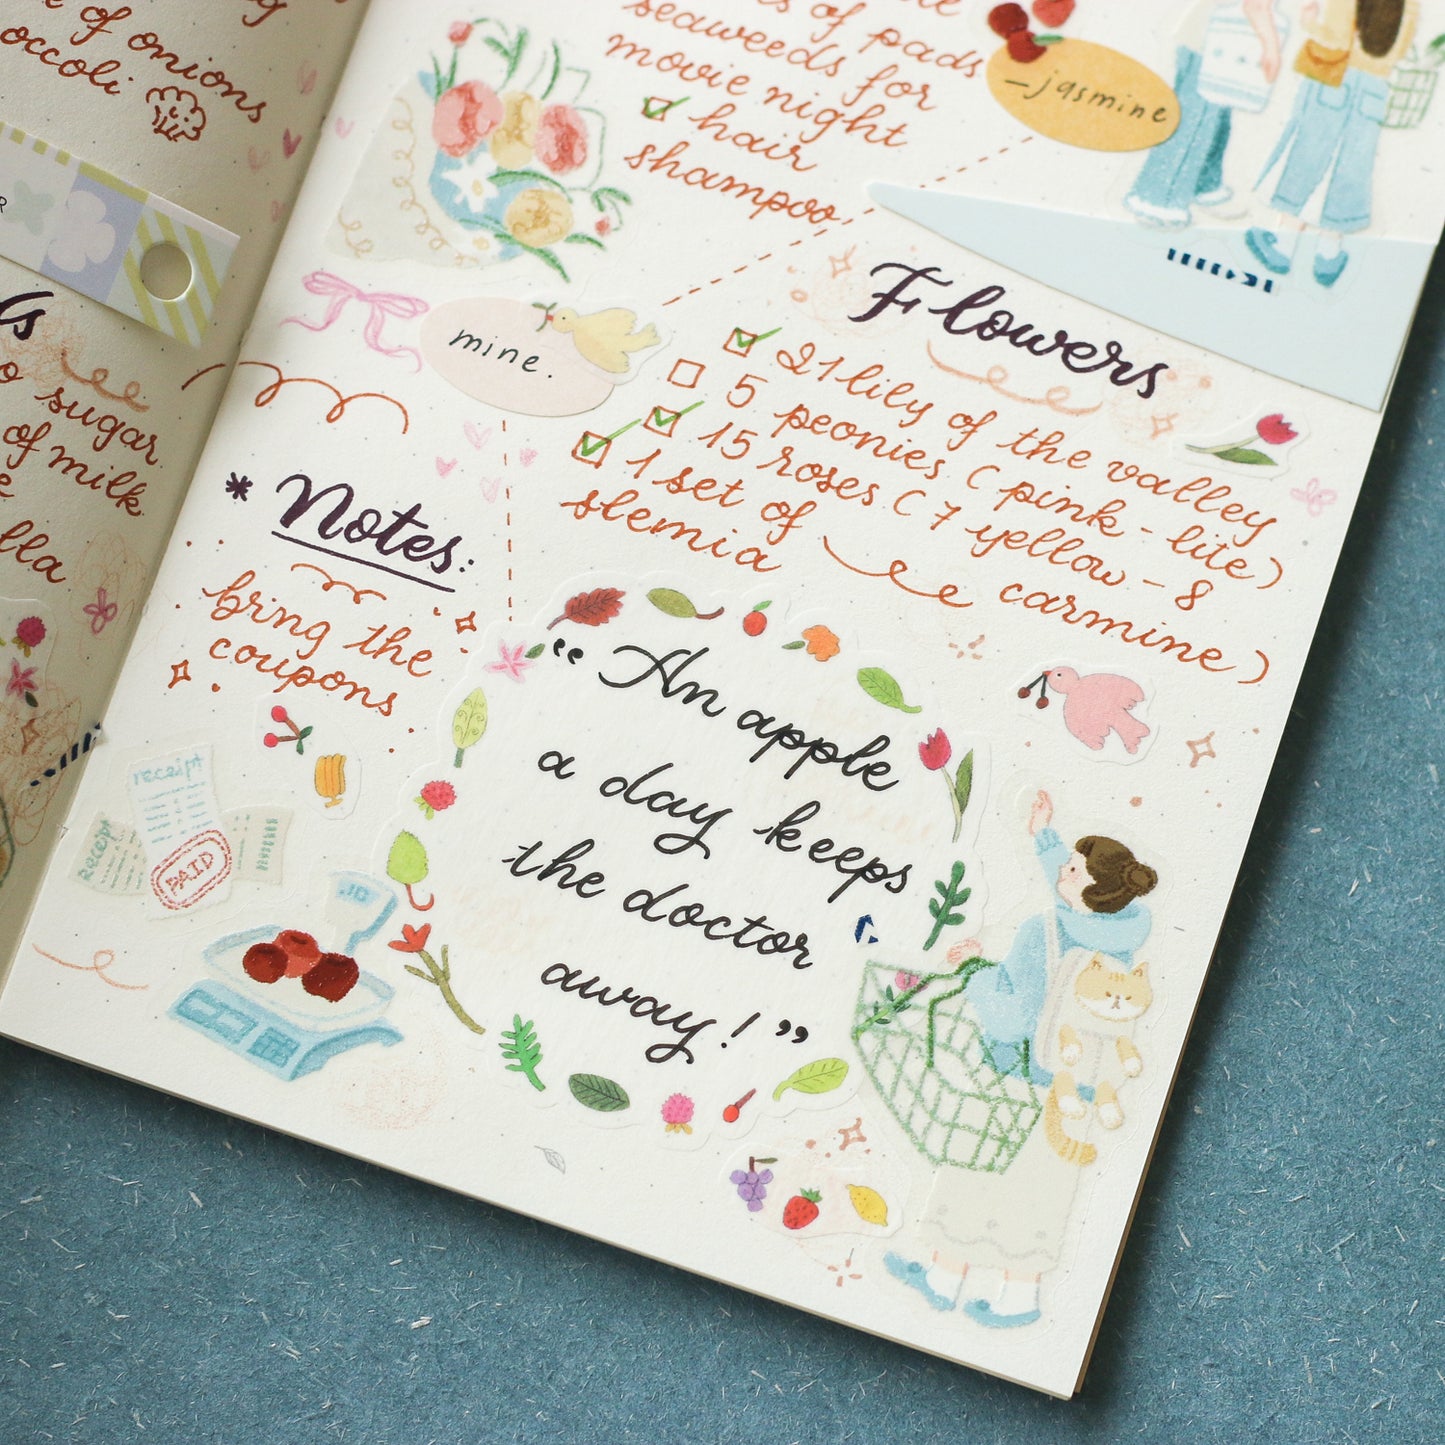 of onions
occoli
sugar
of milk
lla
of pads
seaweeds for
movie night
hair
shampoo
—jasmine
mine.
Flowers
21 lily of the valley
5 peonies (pink - lite)
15 roses (7 yellow - 8
carmine)
1 set of
slemia
* Notes:
bring the
coupons
receipt
receipt
PAID
“An apple
a day keeps
the doctor
away!”